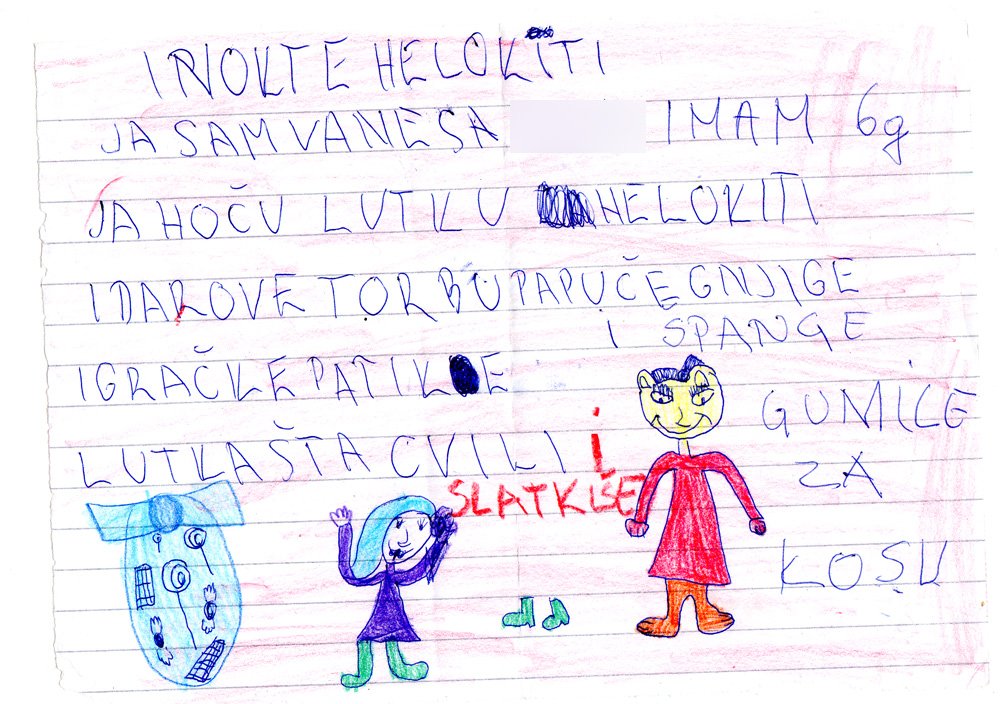 I NOKTE HELOKITI
JA SAM VANESA IMAM 6g
JA HOČU LUTKU HELOKITI
I DAROVE TORBU PAPUČE GNJIGE
I SPANGE
IGRAČKE PATIKE
GUMICE
LUTKA ŠTA CVILI I
ZA
SLATKIŠE
KOSU